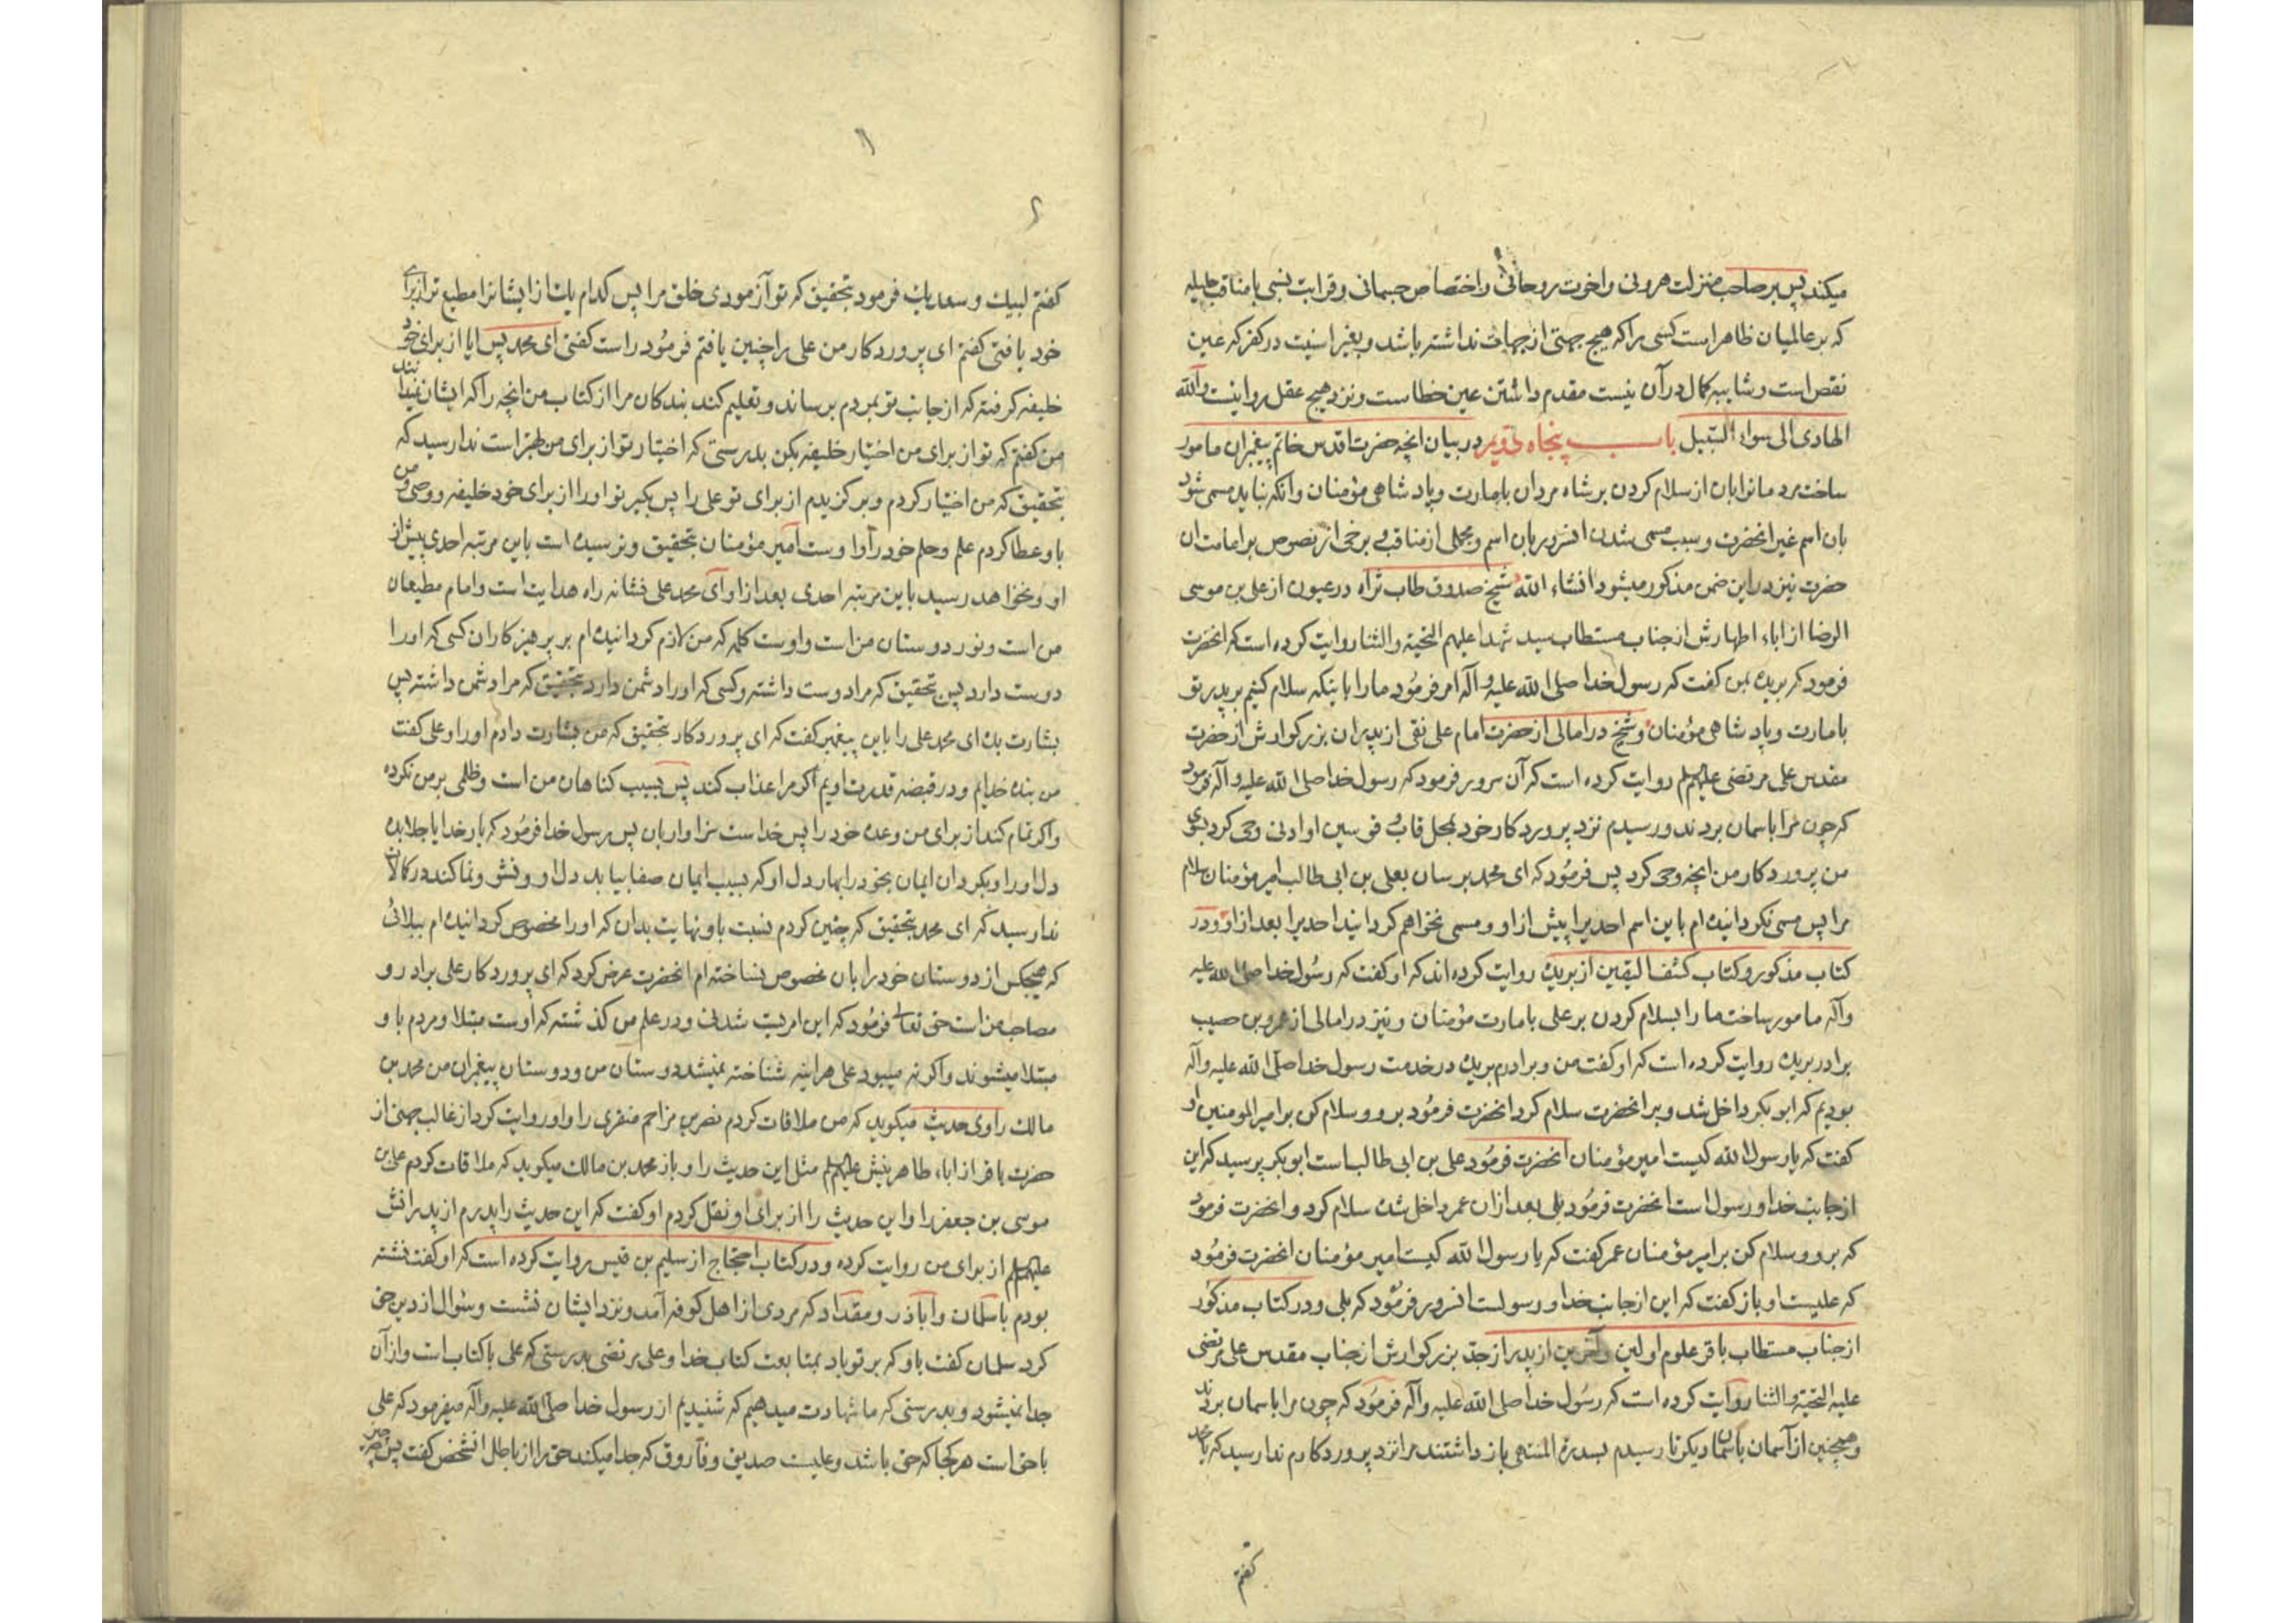 میکند پس بر صاحب منزلت هرونی و اخوت روحانی و اختصاص جسمانی و قرابت نسبی با مناقب جلیله
که بر عالمیان ظاهر است کسی را که هیچ جهتی از جهات نداشته باشد و بغیر اسنیت در کفر که عین
نقص است و شایبه کمال در آن نیست مقدم داشتن عین خطاست و نزد هیچ عقل روا نیست والله
الهادی الی سواء السبیل باب پنجاه در بیان انچه حضرت اقدس خاتم پیغمبران مامور
ساخت مردمانرا بان از سلام کردن بر شاه مردان بامارت و پادشاهی مؤمنان و انکه نباید مسمی شود
بان اسم غیر انحضرت و سبب مسمی شدن انسرور بان اسم و مجملی از مناقب و برخی از نصوص بر امامت ان
حضرت نیز در این ضمن مذکور میشود انشاء الله شیخ صدوق طاب ثراه در عیون از علی بن موسی
الرضا از اباء اطهارش از جناب مستطاب سید شهدا علیهم التحیة والثنا روایت کرده است که انحضرت
فرمود که بریده بمن کفت که رسول خدا صلی الله علیه و آله امر فرمود ما را باینکه سلام کنیم بر پدر تو
بامارت و پادشاهی مؤمنان و شیخ در امالی از حضرت امام علی نقی از پدران بزرکوارش از حضرت
مقدس علی مرتضی علیهم السلم روایت کرده است که آن سرور فرمود که رسول خدا صلی الله علیه و آله فرمود
که چون مرا باسمان بردند و رسیدم نزد پروردکار خود بمحل قاب قوسین او ادنی وحی کرد بسوی
من پروردکار من انچه وحی کرد پس فرمود که ای محمد برسان بعلی بن ابی طالب امیر مؤمنان سلام
مرا پس مسمی نکردانیده ام باین اسم احدیرا پیش از او و مسمی نخواهم کردانید احدیرا بعد از او و در
کتاب مذکور و کتاب کشف الیقین از بریده روایت کرده اند که او کفت که رسول خدا صلی الله علیه
وآله مامور ساخت ما را بسلام کردن بر علی بامارت مؤمنان و نیز در امالی از عمرو بن حصیب
برادر بریده روایت کرده است که او کفت من و برادرم بریده در خدمت رسول خدا صلی الله علیه وآله
بودیم که ابو بکر داخل شد و بر انحضرت سلام کرد انحضرت فرمود برو و سلام کن بر امیر المومنین او
کفت که یا رسول الله کیست امیر مؤمنان انحضرت فرمود علی بن ابی طالب است ابو بکر پرسید که این
از جانب خدا و رسول است انحضرت فرمود بلی بعد از ان عمر داخل شده سلام کرد و انحضرت فرمود
که برو و سلام کن بر امیر مؤمنان عمر کفت که یا رسول الله کیست امیر مؤمنان انحضرت فرمود
که علیست او باز کفت که این از جانب خدا و رسولست انسرور فرمود که بلی و در کتاب مذکور
از جناب مستطاب باقر علوم اولین و آخرین از پدر از جد بزرکوارش از جناب مقدس علی مرتضی
علیه التحیة والثنا روایت کرده است که رسول خدا صلی الله علیه وآله فرمود که چون مرا باسمان بردند
و همچنین از آسمان باسمان دیکر تا رسیدم بسدرة المنتهی باز داشتند مرا نزد پروردکارم ندا رسید که یا محمد
کفتم
کفتم لبیک و سعدیک فرمود بتحقیق که تو آزمودی خلق مرا پس کدام یک از ایشانرا مطیع تر از برای
خود یافتی کفتم ای پروردکار من علی را چنین یافتم فرمود راست کفتی ای محمد پس ایا از برای خود
خلیفه کرفته که از جانب تو بمردم برساند و تعلیم کند بندکان مرا از کتاب من انچه را که ایشان نمیدانند
من کفتم که تو از برای من اختیار خلیفه بکن بدرستی که اختیار تو از برای من بهتر است ندا رسید که
بتحقیق که من اختیار کردم و برکزیدم از برای تو علی را پس بکیر تو او را از برای خود خلیفه و وصی و من
باو عطا کردم علم و حلم خود را و اوست امیر مؤمنان بتحقیق و نرسیده است باین مرتبه احدی پیش از
او و نخواهد رسید باین مرتبه احدی بعد از او ای محمد علی نشانه راه هدایت است و امام مطیعان
من است و نور دوستان من است و اوست کلمه که من لازم کردانیده ام بر پرهیزکاران کسی که او را
دوست دارد پس بتحقیق که مرا دوست داشته و کسی که او را دشمن دارد بتحقیق که مرا دشمن داشته پس
بشارت بده ای محمد علی را باین پیغمبر کفت که ای پروردکار بتحقیق که من بشارت دادم او را و علی کفت
من بنده خدایم و در قبضه قدرت اویم اکر مرا عذاب کند پس بسبب کناهان من است و ظلمی بر من نکرده
و اکر تمام کند از برای من وعده خود را پس خداست سزاوار بان پس رسول خدا فرمود که بار خدایا جلا بده
دل او را و بکردان ایمان بخود را بهار دل او که بسبب ایمان صفا بیابد دل او و نش و نما کند در کمالات
ندا رسید که ای محمد بتحقیق که چنین کردم نسبت باو نهایت بدان که او را مخصوص کردانیده ام ببلائی
که هیچکس از دوستان خود را بان مخصوص نساخته ام انحضرت عرض کرد که ای پروردکار علی برادر و
مصاحب من است حق تعالی فرمود که این امریست شدنی و در علم من کذشته که اوست مبتلا و مردم باو
مبتلا میشوند و اکر نه میبود علی هراینه شناخته نمیشد دوستان من و دوستان پیغمبران من محمد بن
مالک راوی حدیث میکوید که من ملاقات کردم نصر بن مزاحم منقری را و او روایت کرد از غالب جهنی از
حضرت باقر از اباء طاهرینش علیهم السلم مثل این حدیث را و باز محمد بن مالک میکوید که ملاقات کردم علی بن
موسی بن جعفر را و این حدیث را از برای او نقل کردم او کفت که این حدیث را پدرم از پدرانش
علیهم السلم از برای من روایت کرده و در کتاب احتجاج از سلیم بن قیس روایت کرده است که او کفت نشسته
بودم با سلمان و اباذر و مقداد که مردی از اهل کوفه آمد و نزد ایشان نشست و سؤال از دین حق
کرد سلمان کفت باو که بر تو باد بمتابعت کتاب خدا و علی مرتضی بدرستی که علی با کتاب است و از آن
جدا نمیشود و بدرستی که ما شهادت میدهیم که شنیدیم از رسول خدا صلی الله علیه وآله میفرمود که علی
با حق است هر کجا که حق باشد و علیست صدیق و فاروق که جدا میکند حق را از باطل انشخص کفت پس